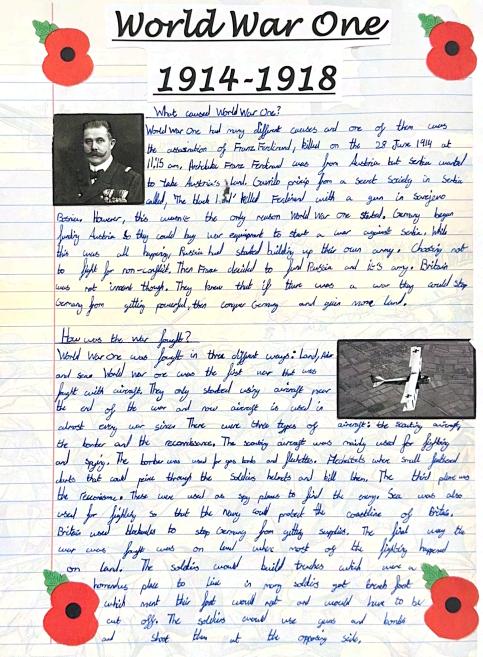 World War One
1914-1918
What caused World War One?
World War One had many different causes and one of them was
the assassination of Franz Ferdinand, killed on the 28 June 1914 at
11:15 am. Archduke Franz Ferdinand was from Austria but Serbia wanted
to take Austria's land. Gavrilo princip from a Secret Society in Serbia
called, 'The black killed Ferdinand with a gun in
Bosnia. However, this wasn't the only reason World War One started. Germany began
funding Austria so they could buy war equipment to start a war against Serbia. While
this was all happening Russia had started building up their own army. Choosing not
to fight for non-conflict. Then France decided to fund Russia and it's army. Britain
was not innocent though. They knew that if there was a war they could stop
Germany from getting powerful, then conquer Germany and gain more land.
How was the war fought?
World War One was fought in three different ways: Land, Air
and sea. World war one was the first war that was
fought with aircraft. They only started using aircraft near
the end of the war and now aircraft is used in
almost every war since. There were three types of aircraft: the scouting aircraft,
the bomber and the reconnaissance. The scouting aircraft was mainly used for fighting
and spying. The bomber was used for gas bombs and flechettes. Flechettes were small
darts that could peirce through the soldiers helmets and kill them. The third plane was
the These were used as spy planes to find the enemy. Sea was also
used for fighting so that the Navy could protect the coastline of Britain.
Britain used blockades to stop Germany from getting supplies. The first way the
war was fought was on land where most of the fighting happened
on land. The soldiers would build trenches which were a
place to live in many soldiers got trench foot
which ment their foot would rot and would have to be
cut off. The soldiers would use guns and bombs
and shoot them at the opposing side.